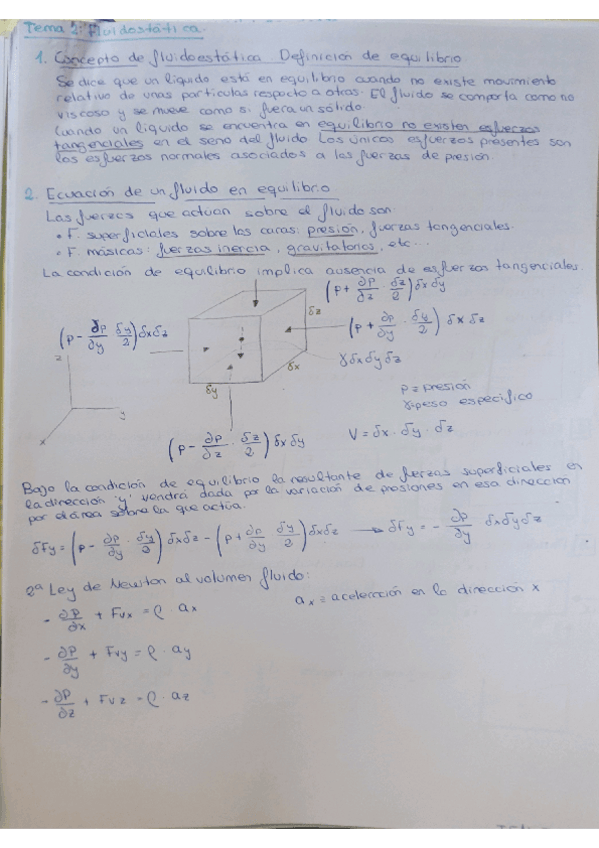 Tema 2: Fluidostática.
1. Concepto de fluidoestática. Definición de equilibrio
Se dice que un líquido está en equilibrio cuando no existe movimiento
relativo de unas partículas respecto a otras. El fluido se comporta como no
viscoso y se mueve como si fuera un sólido.
Cuando un líquido se encuentra en equilibrio no existen esfuerzos
tangenciales en el seno del fluido. Los únicos esfuerzos presentes son
los esfuerzos normales asociados a las fuerzas de presión.
2. Ecuación de un fluido en equilibrio
Las fuerzas que actúan sobre el fluido son:
• F. superficiales sobre las caras: presión, fuerzas tangenciales.
• F. másicas: fuerzas inercia, gravitatorias, etc...
La condición de equilibrio implica ausencia de esfuerzos tangenciales
(p + ∂p/∂z · δz/2) δx δy
(p - ∂p/∂y · δy/2) δx δz
δz
(p + ∂p/∂y · δy/2) δx δz
z
δx
γ δx δy δz
δy
p = presión
γ = peso específico
y
x
(p - ∂p/∂z · δz/2) δx δy
V = δx · δy · δz
Bajo la condición de equilibrio la resultante de fuerzas superficiales en
la dirección 'y' vendrá dada por la variación de presiones en esa dirección
por el área sobre la que actúa.
δFy = (p - ∂p/∂y · δy/2) δx δz - (p + ∂p/∂y · δy/2) δx δz → δFy = - ∂p/∂y δx δy δz
2ª Ley de Newton al volumen fluido:
ax = aceleración en la dirección x
- ∂p/∂x + Fvx = ρ · ax
- ∂p/∂y + Fvy = ρ · ay
- ∂p/∂z + Fvz = ρ · az